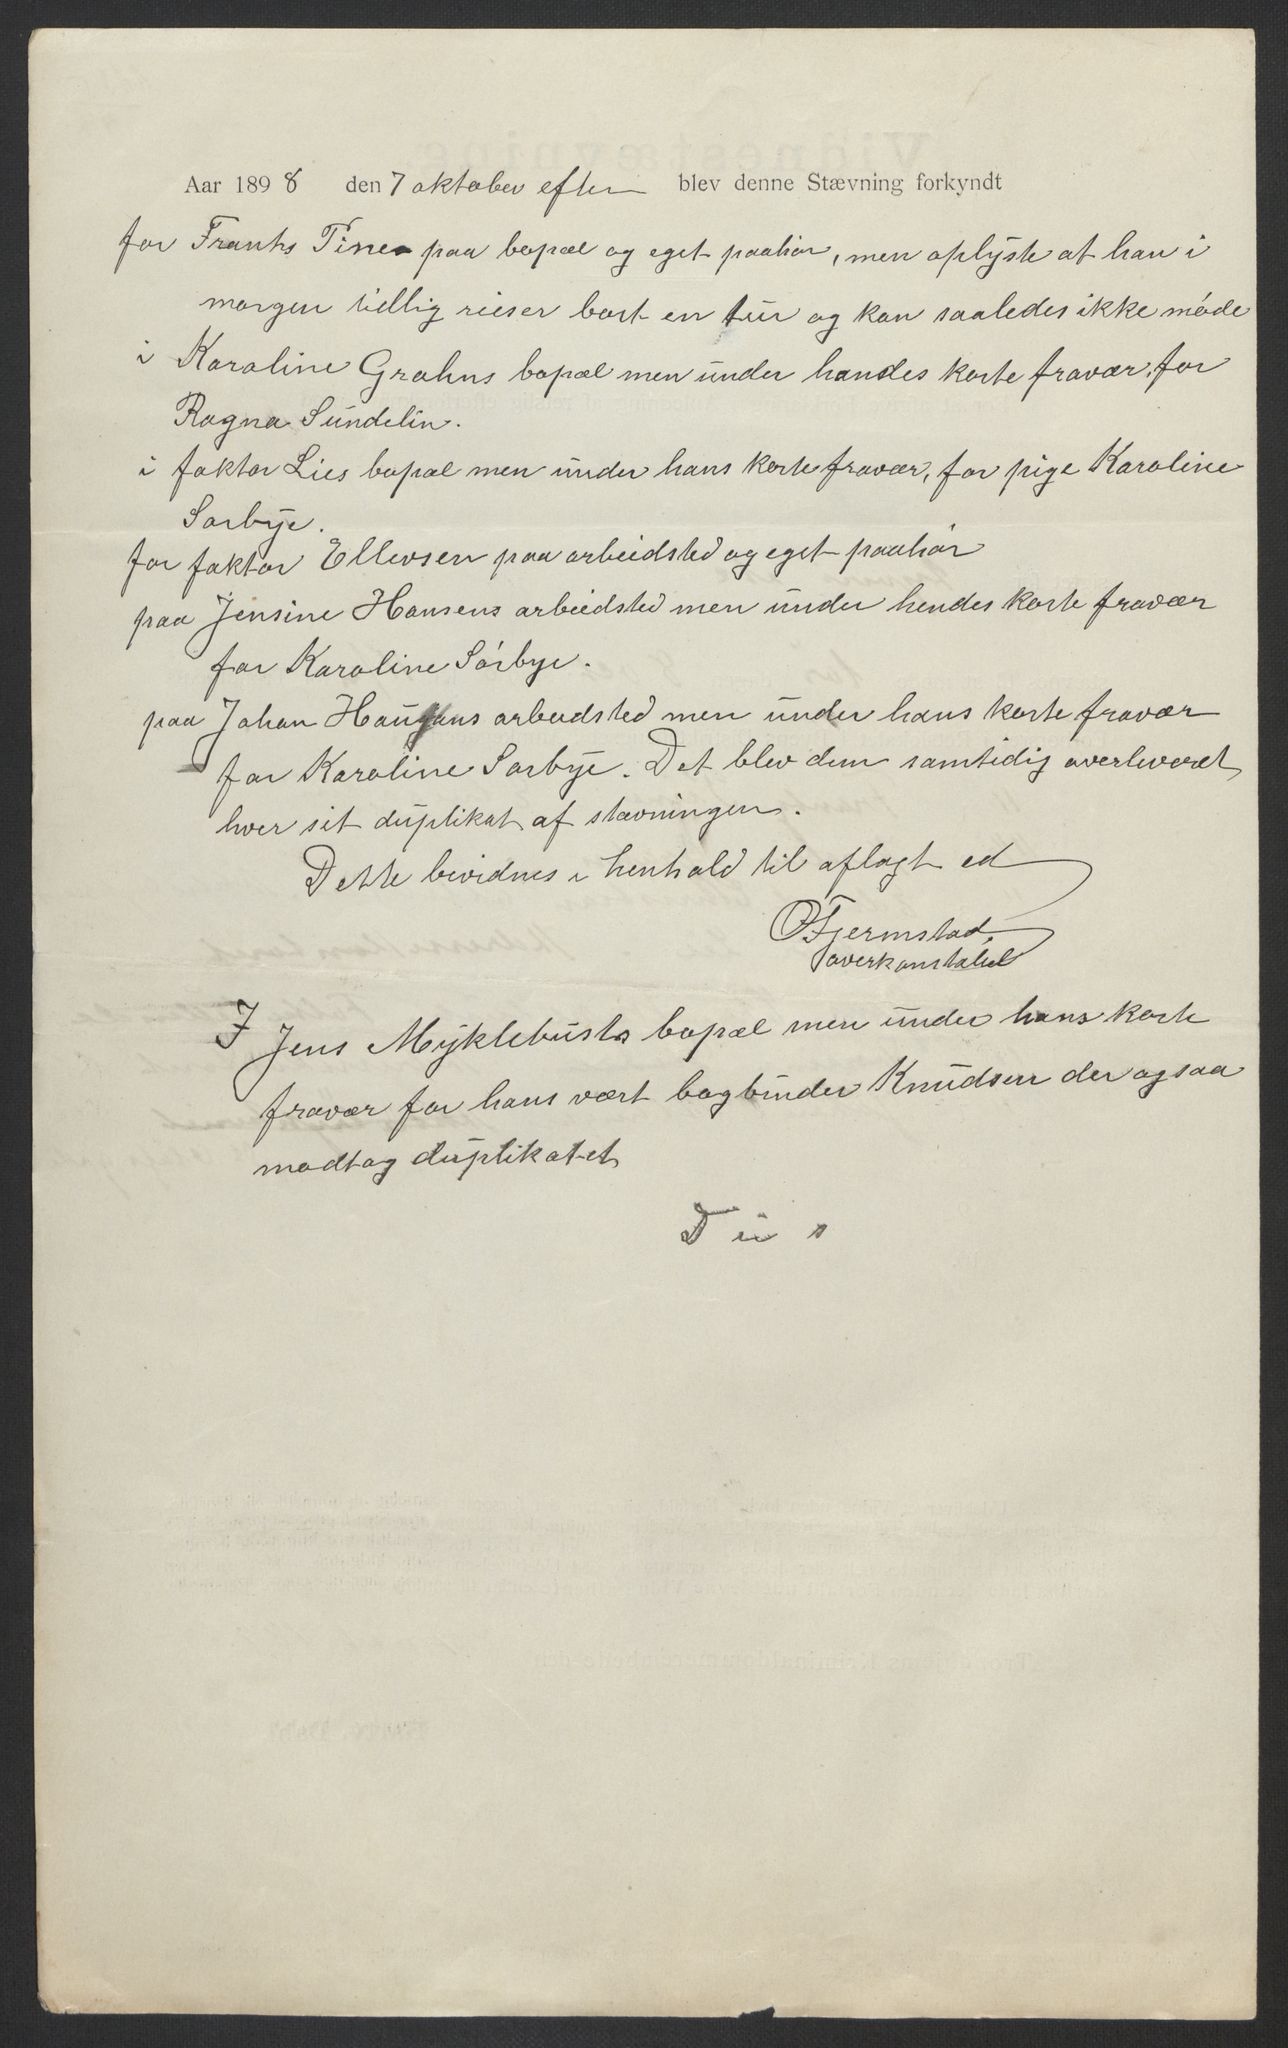 Aar 1898 den 7 oktober efter blev denne Stævning forkyndt
for Frants Tine paa bopæl og eget paahør, men oplyste at han i
morgen tidlig reiser bort en tur og kan saaledes ikke møde
i Karoline Grahns bopæl men under hendes korte fravær, for
Ragna Sundelin.
i faktor Lies bopæl men under hans korte fravær, for pige Karoline
Sørbye.
for faktor Ellevsen paa arbeidsted og eget paahør
paa Jensine Hansens arbeidsted men under hendes korte fravær
for Karoline Sørbye.
paa Johan Haugans arbeidsted men under hans korte fravær
for Karoline Sørbye. Det blev dem samtidig overleveret
hver sit duplikat af stævningen.
Dette bevidnes i henhold til aflagt ed
O Fjermstad
overkonstabel
I Jens Myklebusts bopæl men under hans korte
fravær for hans vært bogbinder Knudsen der ogsaa
modtog duplikatet
D u s